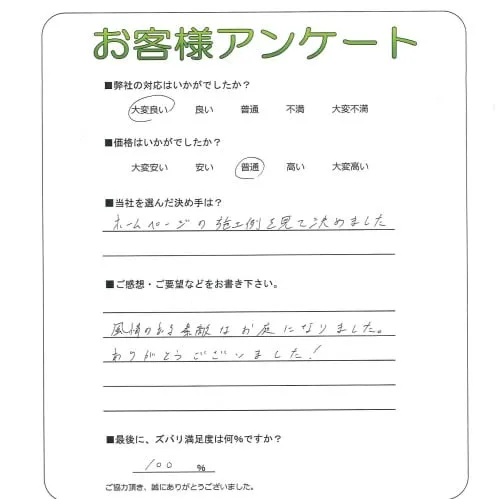 お客様アンケート
■弊社の対応はいかがでしたか？
大変良い 良い 普通 不満 大変不満
■価格はいかがでしたか？
大変安い 安い 普通 高い 大変高い
■当社を選んだ決め手は？
ホームページの施工例を見て決めました
■ご感想・ご要望などをお書き下さい。
風情のある素敵はお庭になりました。
ありがとうございました！
■最後に、ズバリ満足度は何％ですか？
100 ％
ご協力頂き、誠にありがとうございました。